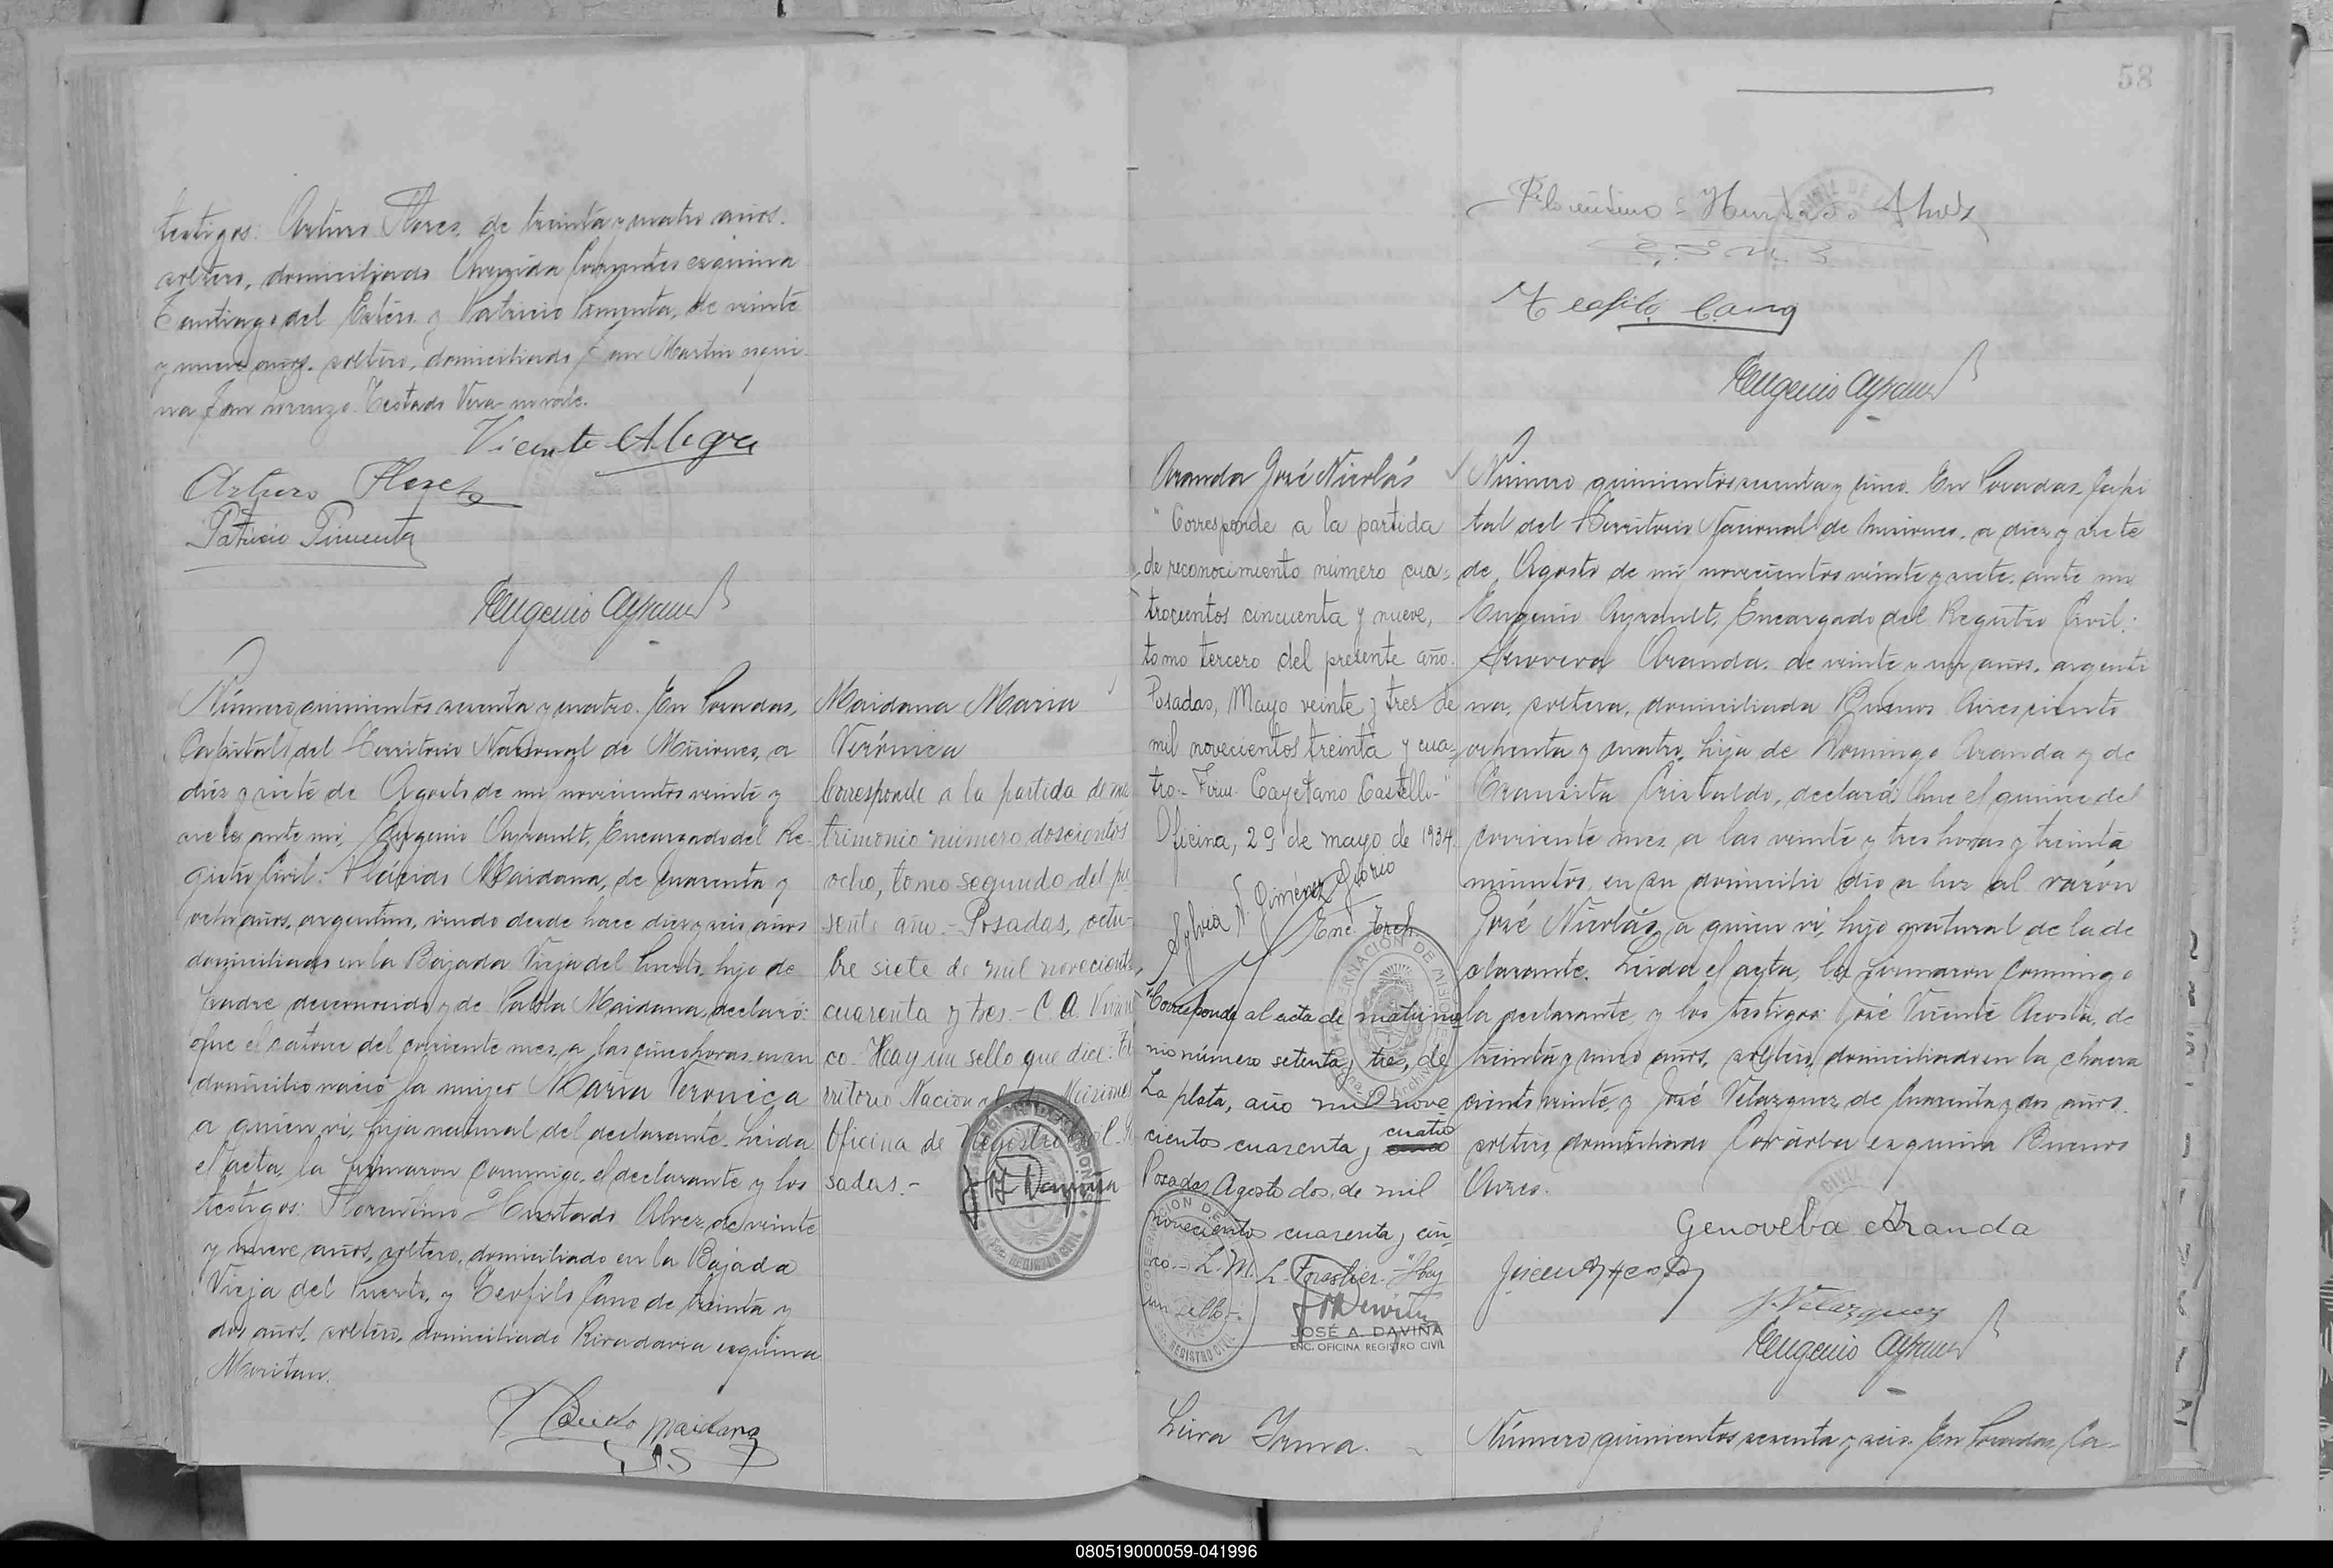 testigos: Arturo Flores, de treinta y cuatro años.
soltero, domiciliado Avenida Corrientes esquina
Santiago del Estero y Patricio Pimenta, de veinte
y nueve años, soltero, domiciliado San Martin esqui-
na San Lorenzo. Testado Vera-no vale.
Vicente Alegre
Arturo Flores
Patricio Pimenta
Eugenio Ayrault
Número quinientos sesenta y cuatro. En Posadas,
Capital del Territorio Nacional de Misiones, a
diez y siete de Agosto de mil novecientos veinte y
siete, ante mi, Eugenio Ayrault, Encargado del Re-
gistro Civil: Plácido Maidana, de cuarenta y
ocho años, argentino, viudo desde hace diez y seis años
domiciliado en la Bajada Vieja del Puerto, hijo de
padre desconocido y de Pabla Maidana, declaró:
Que el catorce del corriente mes, a las cinco horas, en su
domicilio nació la mujer Maria Veronica
a quien vi, hija natural del declarante. Leida
el acta, la firmaron conmigo, el declarante y los
testigos: Florentino Hurtado Alvez, de veinte
y nueve años, soltero, domiciliado en la Bajada
Vieja del Puerto, y Teofilo Cano de treinta y
dos años, soltero, domiciliado Rivadavia esquina
Plácido Maidana
Maidana Maria
Verónica
Corresponde a la partida de ma
trimonio número doscientos
ocho, tomo segundo del pre
sente año.- Posadas, octu-
bre siete de mil novecientos
cuarenta y tres.- C. A. Vivan
co. Hay un sello que dice: Te
rritorio Nacional de Misiones
Oficina de Registro Civil. Po
sadas.-
58
Florentino Hurtado Alvez
Teofilo Cano
Eugenio Ayrault
Aranda José Nicolás
"Corresponde a la partida
de reconocimiento número cua-
trocientos cincuenta y nueve,
tomo tercero del presente año.
Posadas, Mayo veinte y tres de
mil novecientos treinta y cua-
tro.- Firm. Cayetano Castelli-"
Oficina, 29 de mayo de 1934.
Sylvia N. Giménez Giorio
Enc. Arch.
Corresponde al acta de matrimo
nio número setenta y tres, de
La plata, año mil nove
cientos cuarenta y cuatro
Posadas, Agosto dos, de mil
novecientos cuarenta y cin
co.- L. M. L. Forestier.- "Hay
un sello.-
JOSÉ A. DAVIÑA
ENC. OFICINA REGISTRO CIVIL
Número quinientos sesenta y cinco. En Posadas, Capi
tal del Territorio Nacional de Misiones, a diez y siete
de Agosto de mil novecientos veinte y siete, ante mi
Eugenio Ayrault, Encargado del Registro Civil:
Genoveva Aranda, de veinte y un años, argenti
na, soltera, domiciliada Buenos Aires ciento
ochenta y cuatro, hija de Domingo Aranda y de
Transita Cristaldo, declaró: Que el quince del
corriente mes, a las veinte y tres horas y treinta
minutos, en su domicilio dió a luz al varón
José Nicolás, a quien vi, hijo natural de la de
clarante. Leida el acta, la firmaron conmigo
la declarante, y los testigos: José Vicente Acosta, de
treinta y cinco años, soltero, domiciliado en la chacra
ciento veinte, y José Velazquez, de cuarenta y dos años,
soltero, domiciliado Córdoba esquina Buenos
Aires.
Genoveba Aranda
J. Velazquez
Eugenio Ayrault
Leiva Irma.
Número quinientos sesenta y seis. En Posadas, Ca-
080519000059-041996